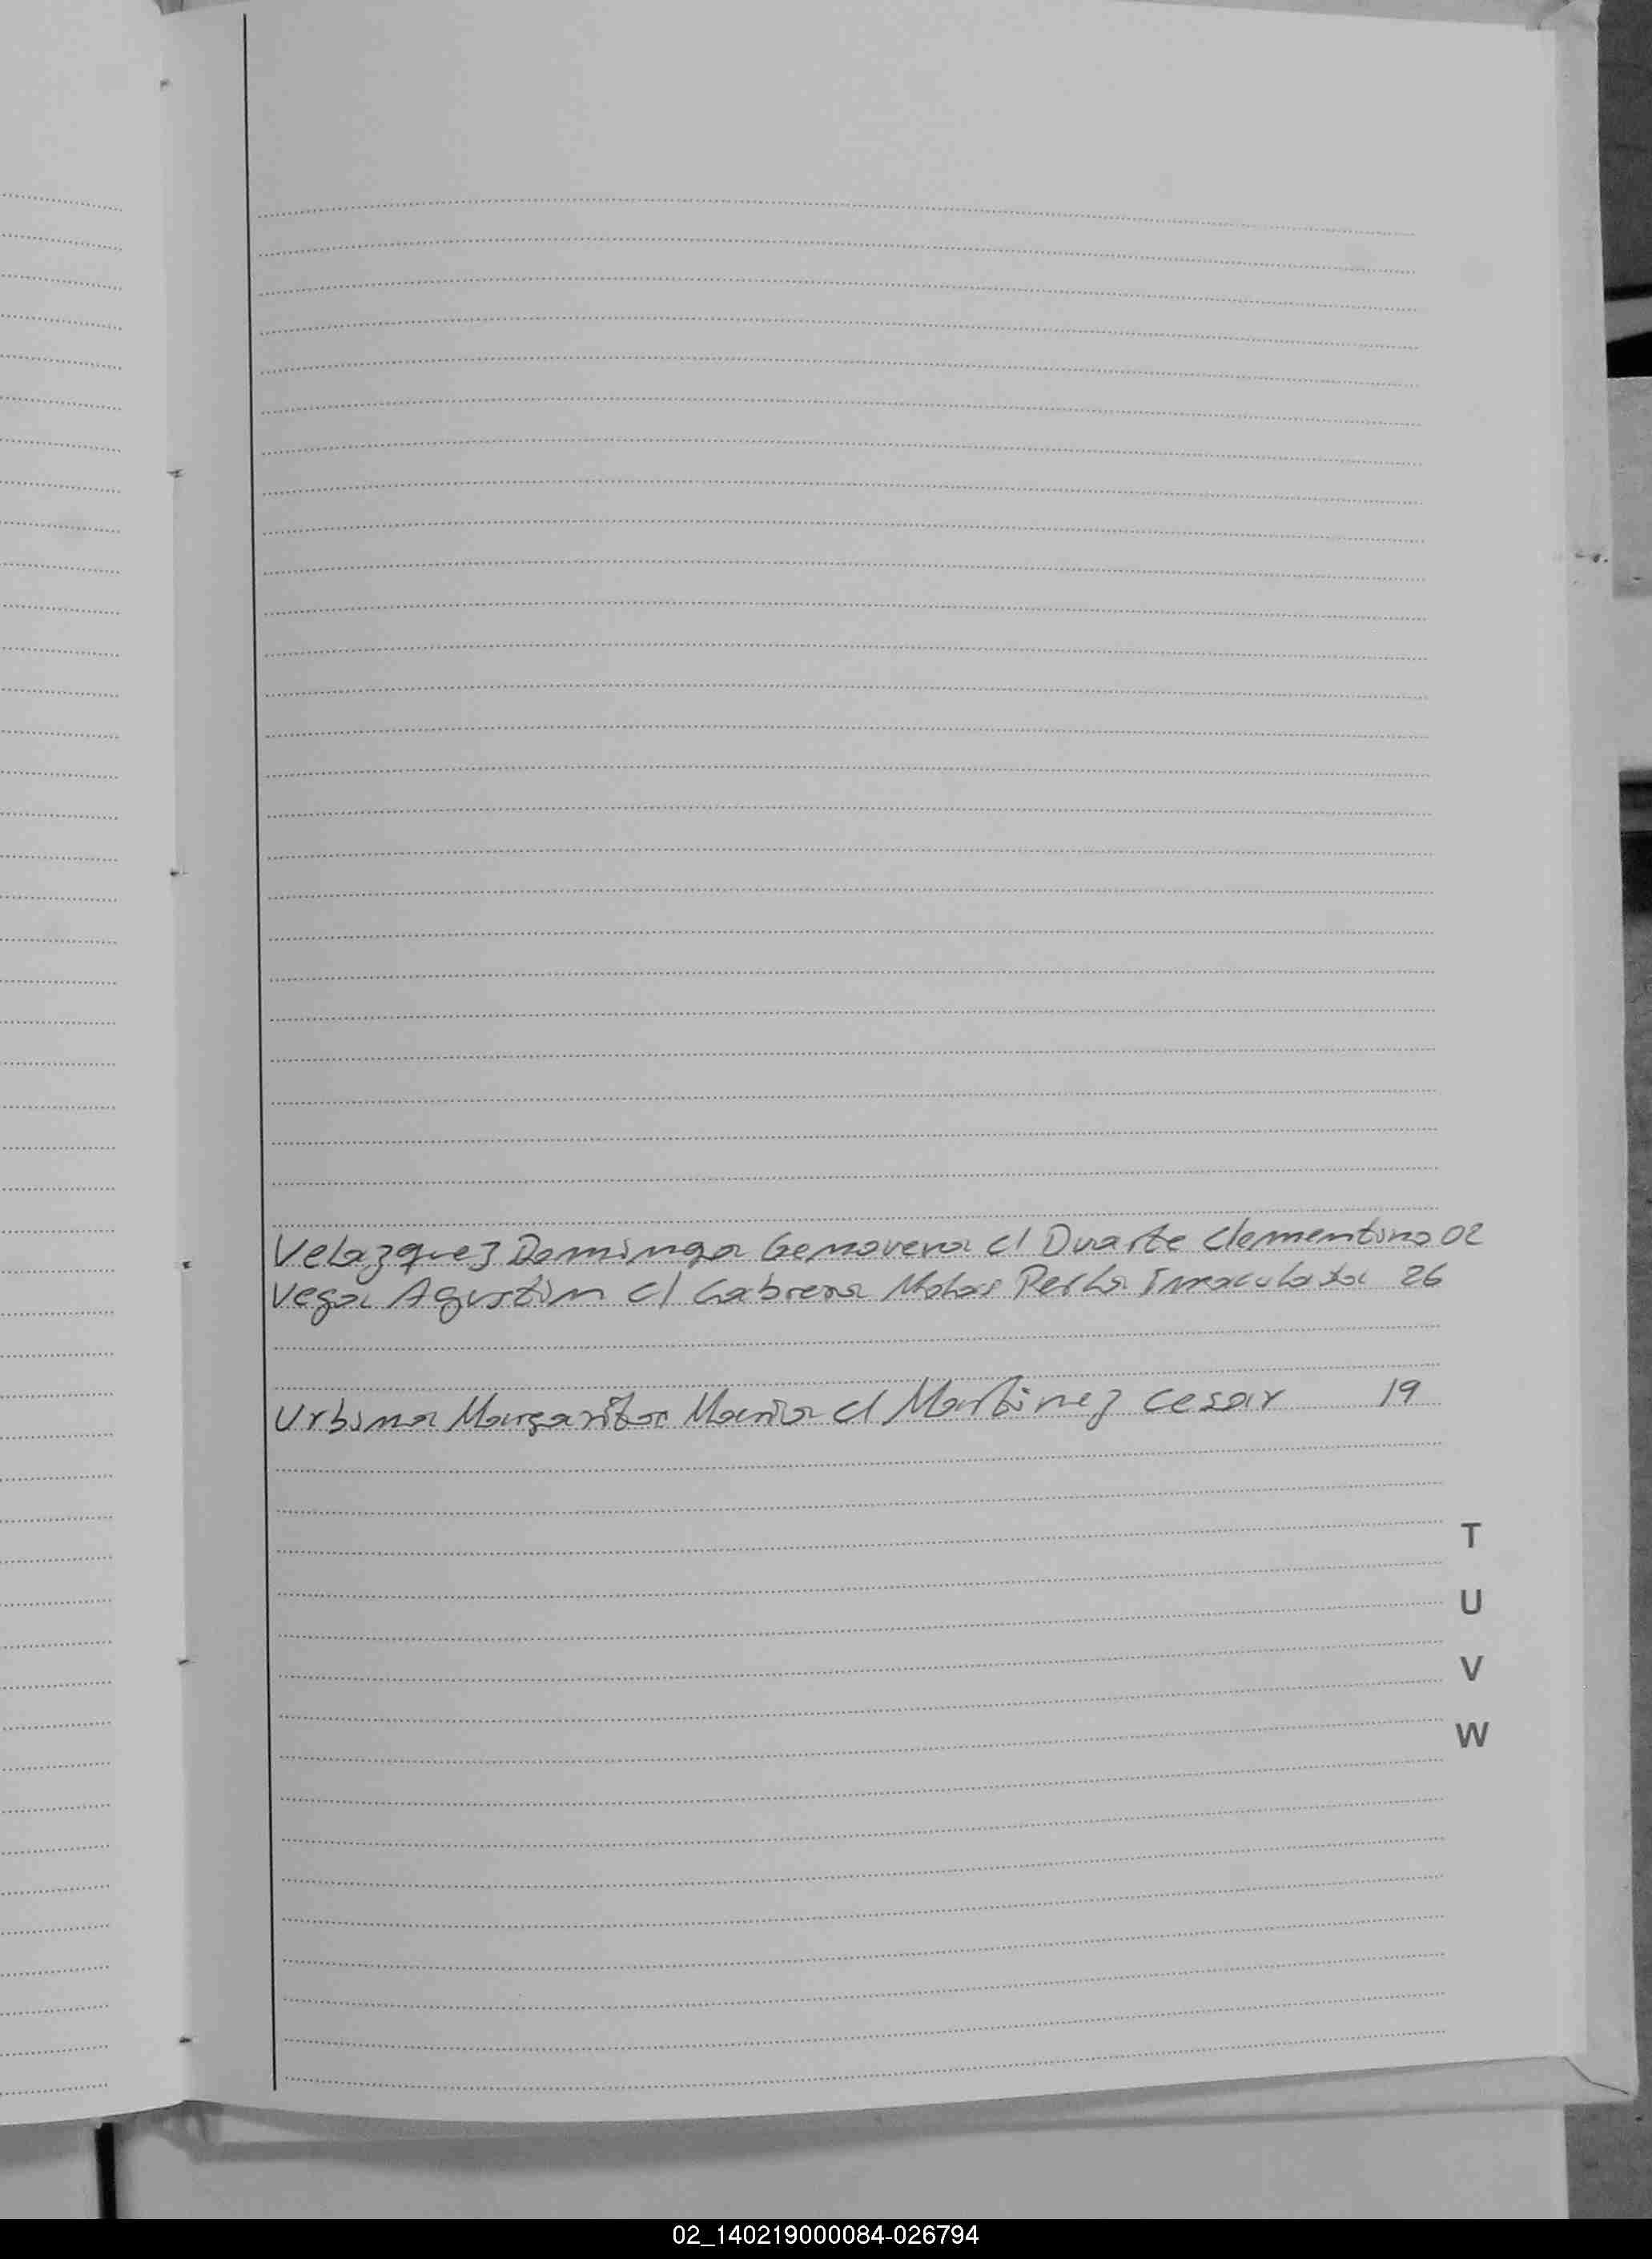 Velazquez Dominga Genovera c/ Duarte Clementino 02
Vega Agustin c/ Cabrera Molas Perla Inmaculata 26
Urbina Margarita Maria c/ Martinez Cesar 19
T
U
V
W
02_140219000084-026794